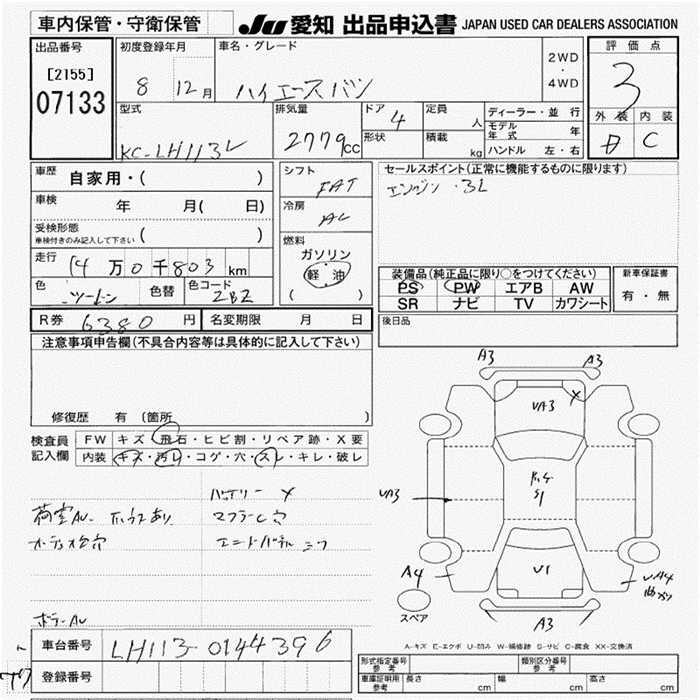 車内保管・守衛保管
JU 愛知 出品申込書 JAPAN USED CAR DEALERS ASSOCIATION
出品番号
[2155]
07133
初度登録年月
8 12月
車名・グレード
ハイエースバン
2WD
・
4WD
評価点
3
外装 内装
C
型式
KC-LH113V
排気量
2779cc
ドア
4
形状
定員
人
積載
kg
ディーラー・並行
モデル年式 年
ハンドル 左・右
車歴 自家用・( )
車検 年 月( 日)
受検形態
車検付きのみ記入して下さい ( )
走行 14万0千803km
色 ツートン 色替 色コード 2BZ
シフト
FAT
冷房
AC
燃料
ガソリン
軽油
( )
セールスポイント(正常に機能するものに限ります)
エンジン・3L
装備品(純正品に限り○をつけてください)
PS PW エアB AW
SR ナビ TV カワシート
新車保証書
有・無
R券 6380円 名変期限 月 日
後日品
注意事項申告欄(不具合内容等は具体的に記入して下さい)
修復歴 有(箇所 )
検査員記入欄
FW キズ・飛石・ヒビ割・リペア跡・X要
内装 キズ・汚レ・コゲ・穴・スレ・キレ・破レ
バッテリー X
荷室AU. マフラーC穴
エンドパネル
ボデーAU
A3 A3
UA3
X
UA3
S1
U1
A4
UA4
A3
スペア
A-キズ E-エクボ U-凹み W-補修跡 S-サビ C-腐食 XX-交換済
車台番号 LH113-0144396
登録番号
形式指定番号 参考
類別区分番号 参考
車庫証明用 参考 長さ cm 幅 cm 高さ cm